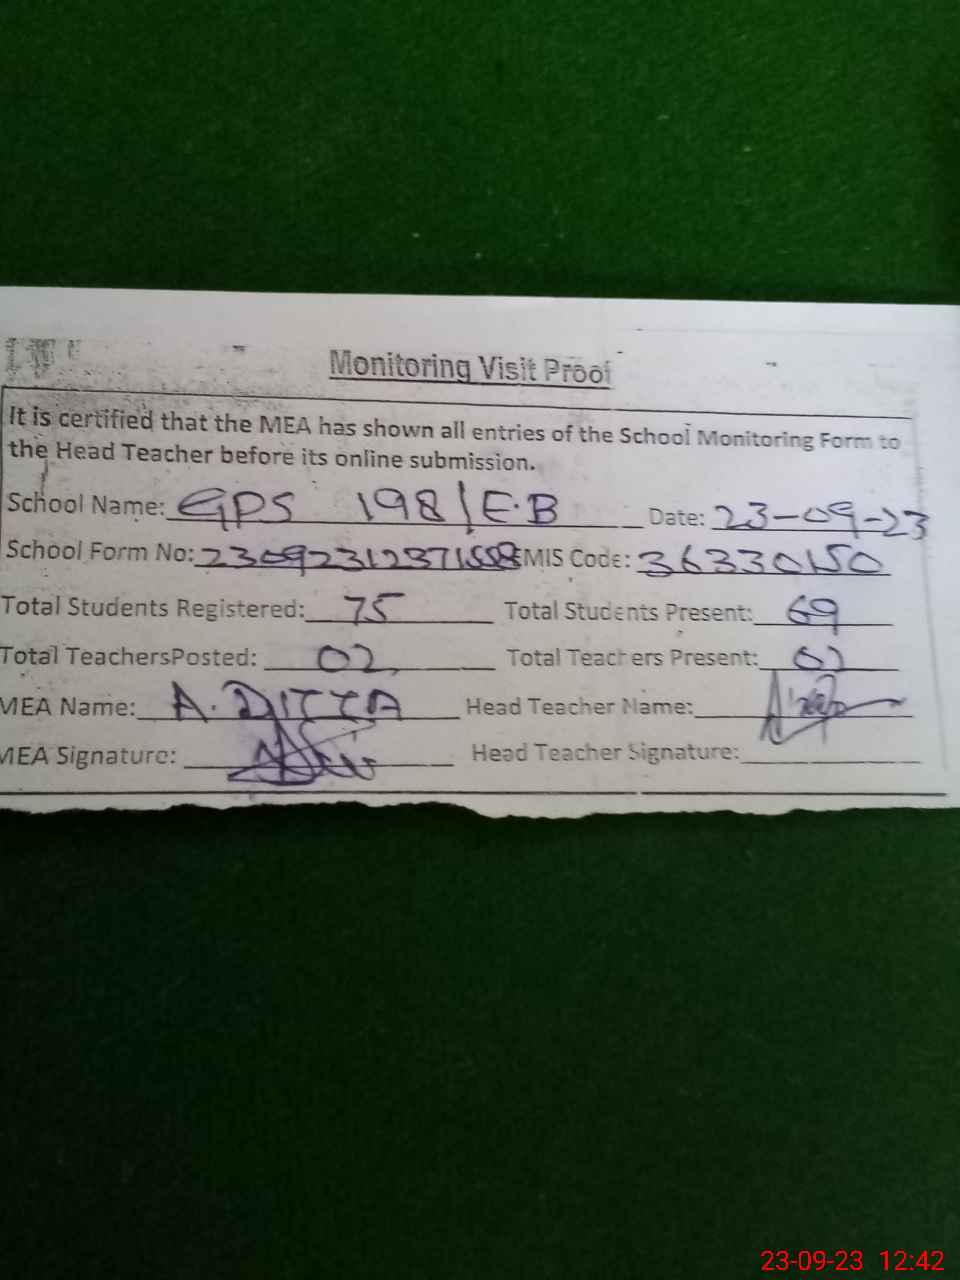 Monitoring Visit Proof
It is certified that the MEA has shown all entries of the School Monitoring Form to
the Head Teacher before its online submission.
School Name: GPS 198/E.B Date: 23-09-23
School Form No: EMIS Code: 36330150
Total Students Registered: 75 Total Students Present: 69
Total TeachersPosted: 02 Total Teachers Present: 02
MEA Name: A. DITTA Head Teacher Name:
MEA Signature: Head Teacher Signature:
23-09-23 12:42